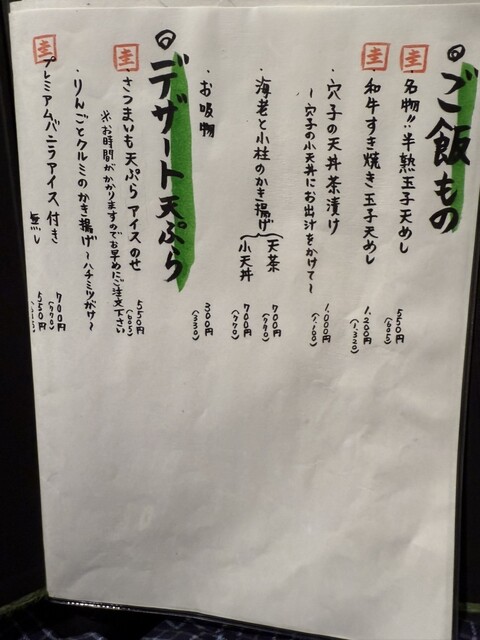 ◎ご飯もの
圭
・名物!!半熟玉子天めし 550円 (605)
圭
・和牛すき焼き玉子天めし 1,200円 (1,320)
・穴子の天丼茶漬け 1,000円 (1,100)
〜穴子の小天丼にお出汁をかけて〜
・海老と小柱のかき揚げ
天茶 700円 (770)
小天丼 700円 (770)
・お吸物 300円 (330)
◎デザート天ぷら
圭
・さつまいも天ぷらアイスのせ 550円 (605)
※お時間がかかりますのでお早めにご注文下さい
・りんごとクルミのかき揚げ〜ハチミツがけ〜
圭
プレミアムバニラアイス付き 700円 (770)
無し 550円